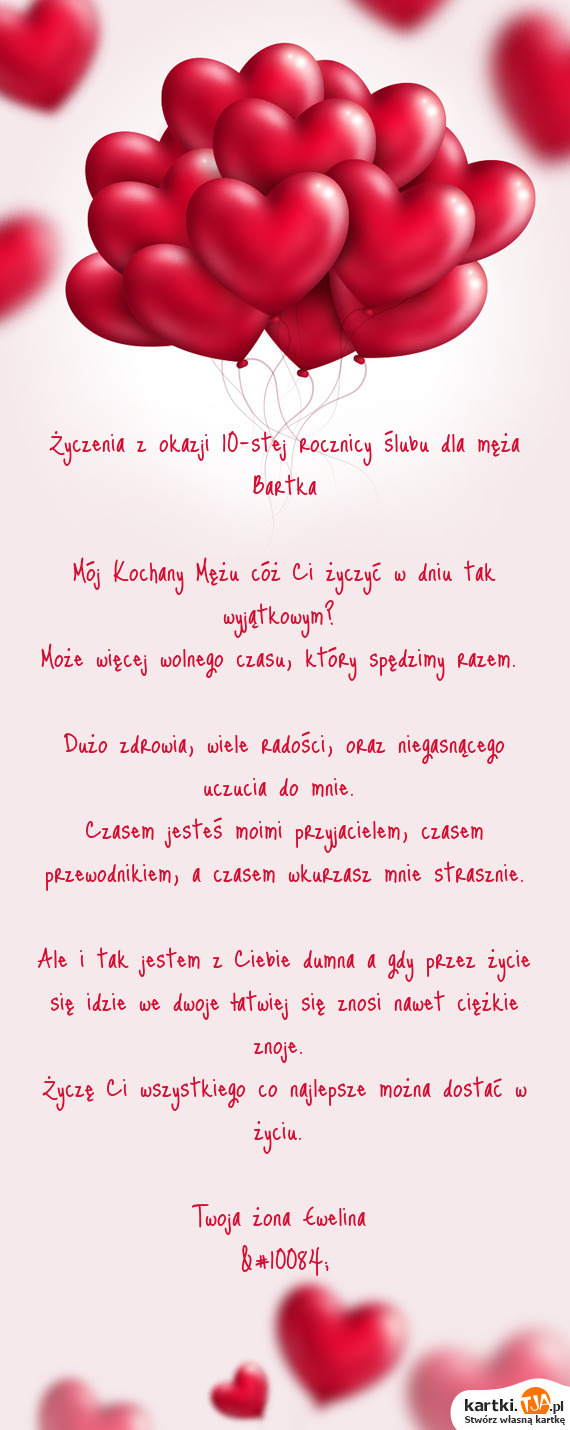 Życzenia z okazji 10-stej rocznicy ślubu dla męża
Bartka
Mój Kochany Mężu cóż Ci życzyć w dniu tak
wyjątkowym?
Może więcej wolnego czasu, który spędzimy razem.
Dużo zdrowia, wiele radości, oraz niegasnącego
uczucia do mnie.
Czasem jesteś moimi przyjacielem, czasem
przewodnikiem, a czasem wkurzasz mnie strasznie.
Ale i tak jestem z Ciebie dumna a gdy przez życie
się idzie we dwoje łatwiej się znosi nawet ciężkie
znoje.
Życzę Ci wszystkiego co najlepsze można dostać w
życiu.
Twoja żona Ewelina
&#10084;
kartki.TJA.pl
Stwórz własną kartkę